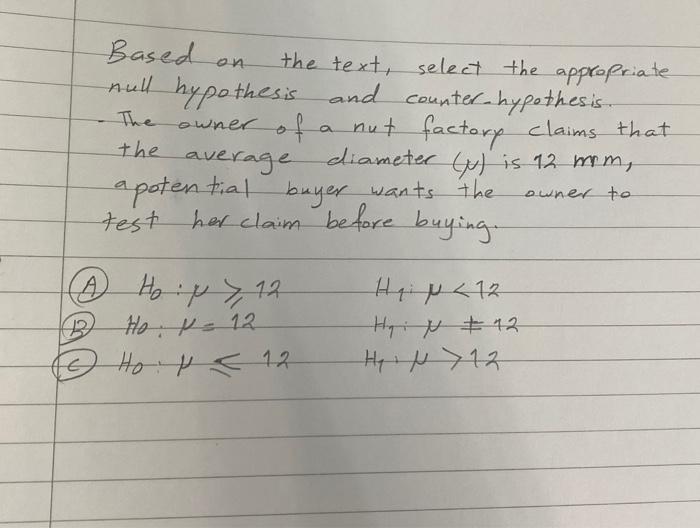 Based on the text, select the appropriate
null hypothesis and counter-hypothesis.
- The owner of a nut factory claims that
the average diameter (μ) is 12 mm,
a potential buyer wants the owner to
test her claim before buying.
(A) H₀ : μ ⩾ 12 H₁ : μ < 12
(B) H₀ : μ = 12 H₁ : μ ≠ 12
(C) H₀ : μ ⩽ 12 H₁ : μ > 12